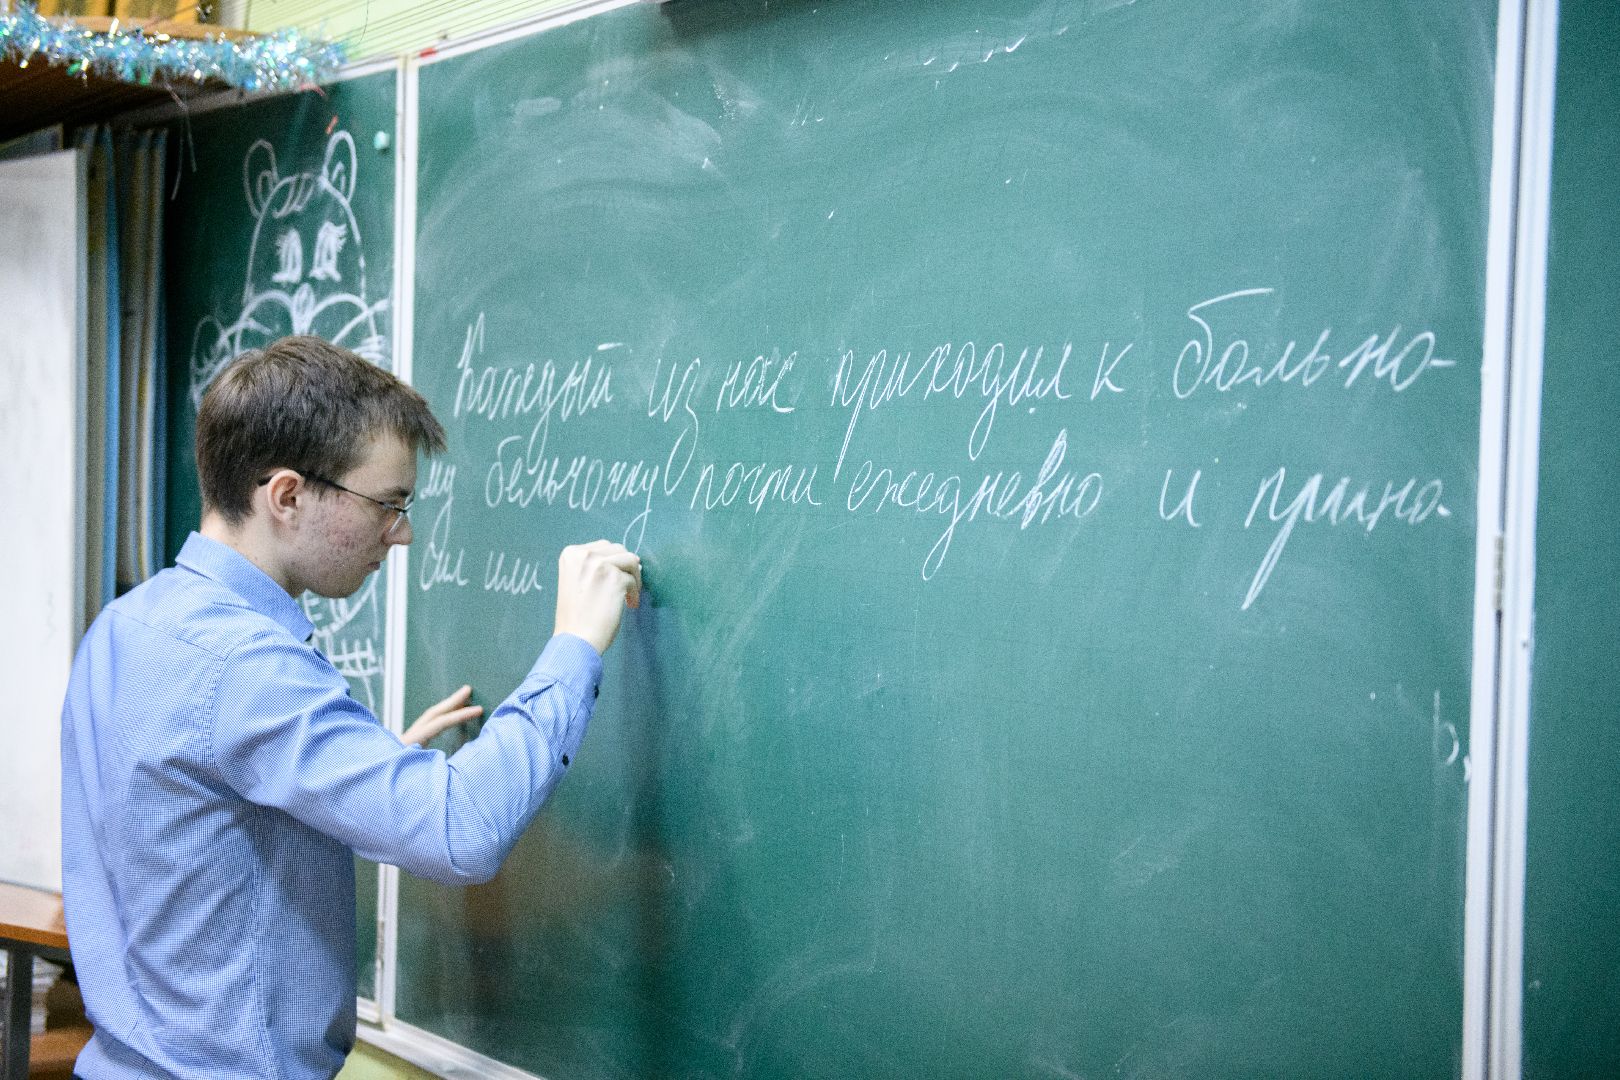 Каждый из нас приходил к больно-
му бельчонку почти ежедневно и прино-
сил или